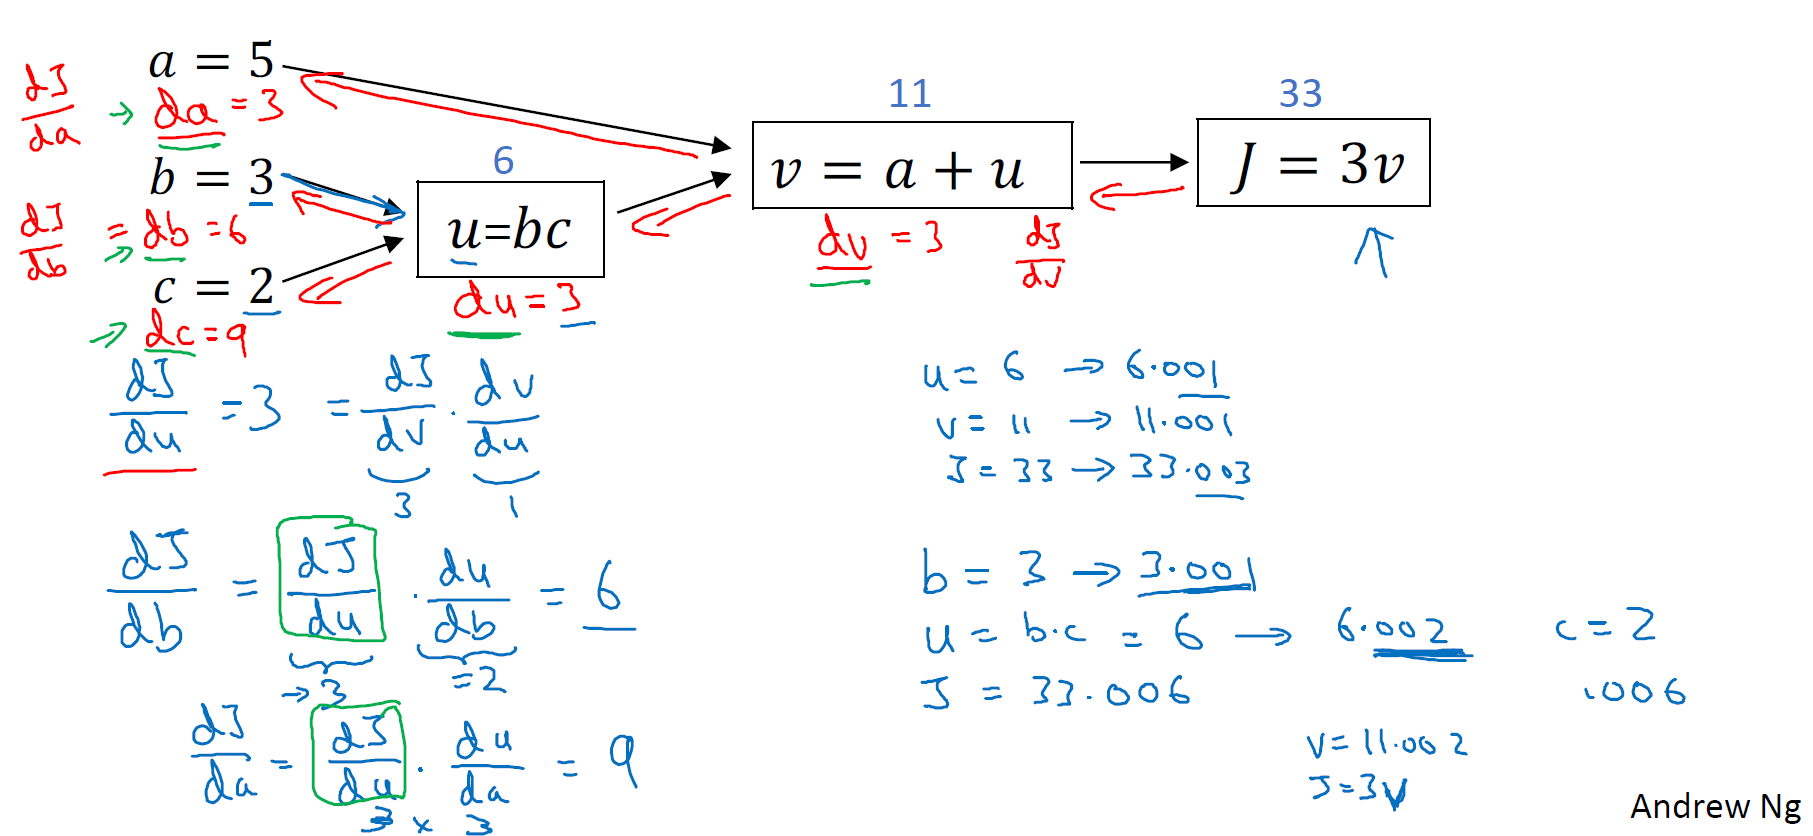 a = 5
dJ/da → da = 3
b = 3
dJ/db = → db = 6
c = 2
→ dc = 9
6
u=bc
du = 3
11
v = a + u
dv = 3 dJ/dv
33
J = 3v
dJ/du = 3 = dJ/dv · dv/du
3 1
dJ/db = dJ/du · du/db = 6
→ 3 = 2
dJ/da = dJ/du · du/da = 9
3 × 3
u = 6 → 6.001
v = 11 → 11.001
J = 33 → 33.003
b = 3 → 3.001
u = b·c = 6 → 6.002 c = 2
J = 33.006 .006
v = 11.002
J = 3v
Andrew Ng